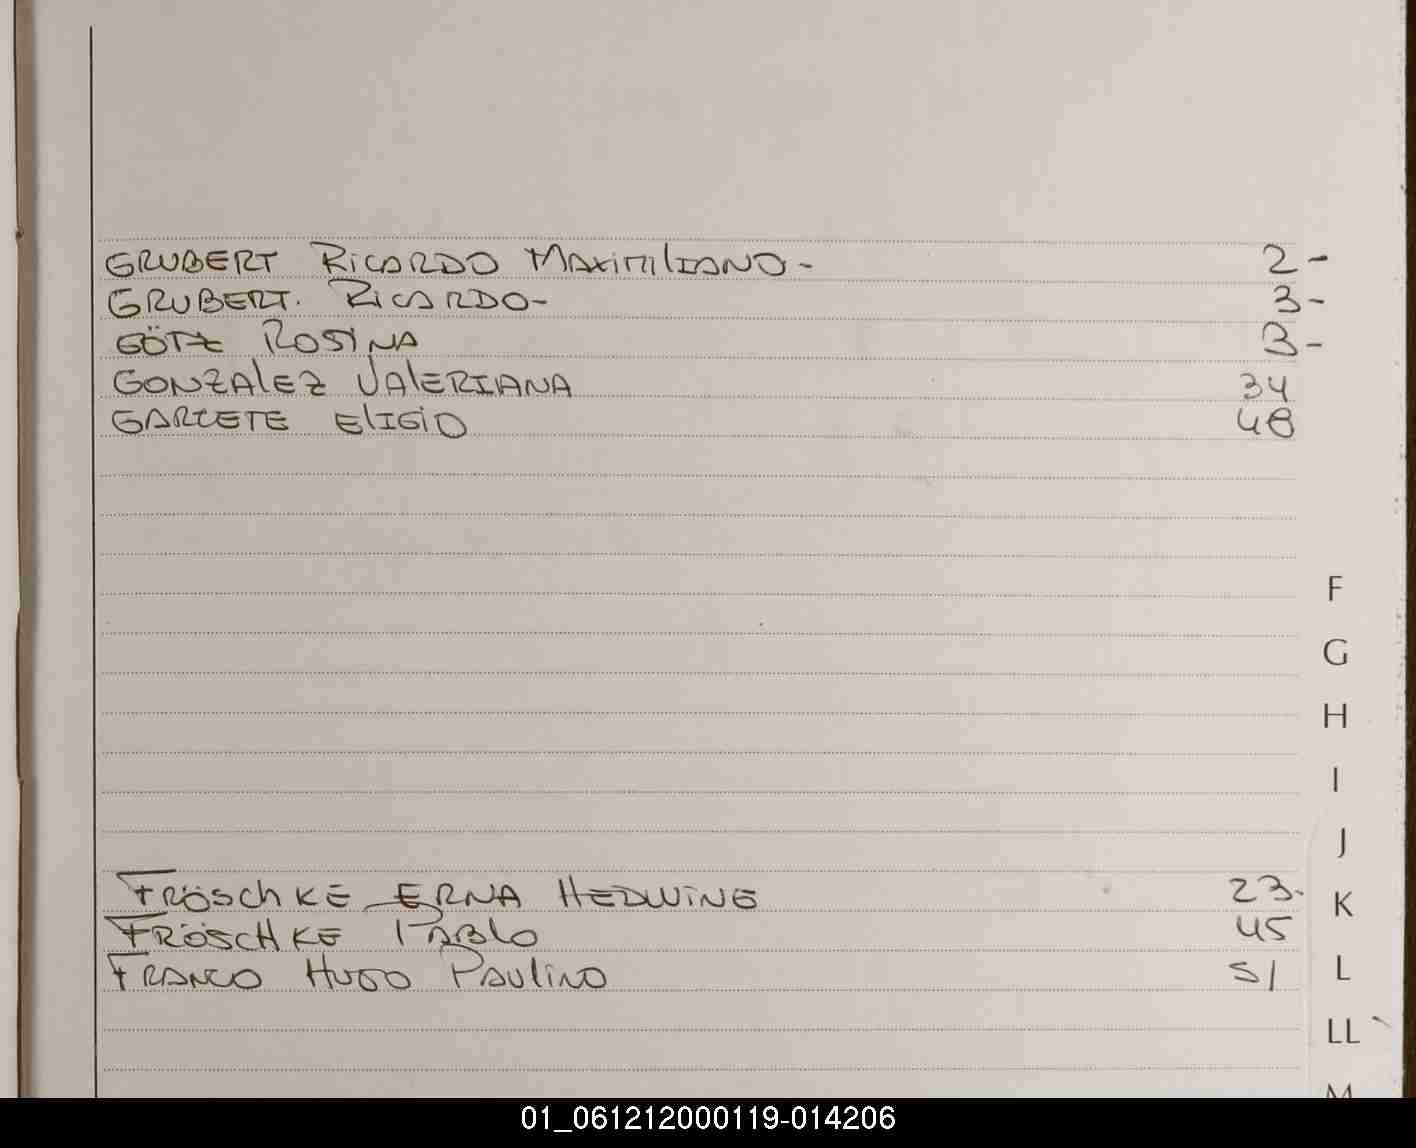 GRUBERT RiCARDO MAXiMilIANO- 2-
GRUBERT. RiCARDO- 3-
GÖTZ ROSiNA 3-
GONZALEZ VALERIANA 34
GARCETE ElIGiO 48
F
G
H
I
J
FRÖSCHKE ERNA HEDWiNG 23-
K
FRÖSCHKE PABLO 45
FRANCO HUGO PAULiNO 51
L
LL
M
01_061212000119-014206